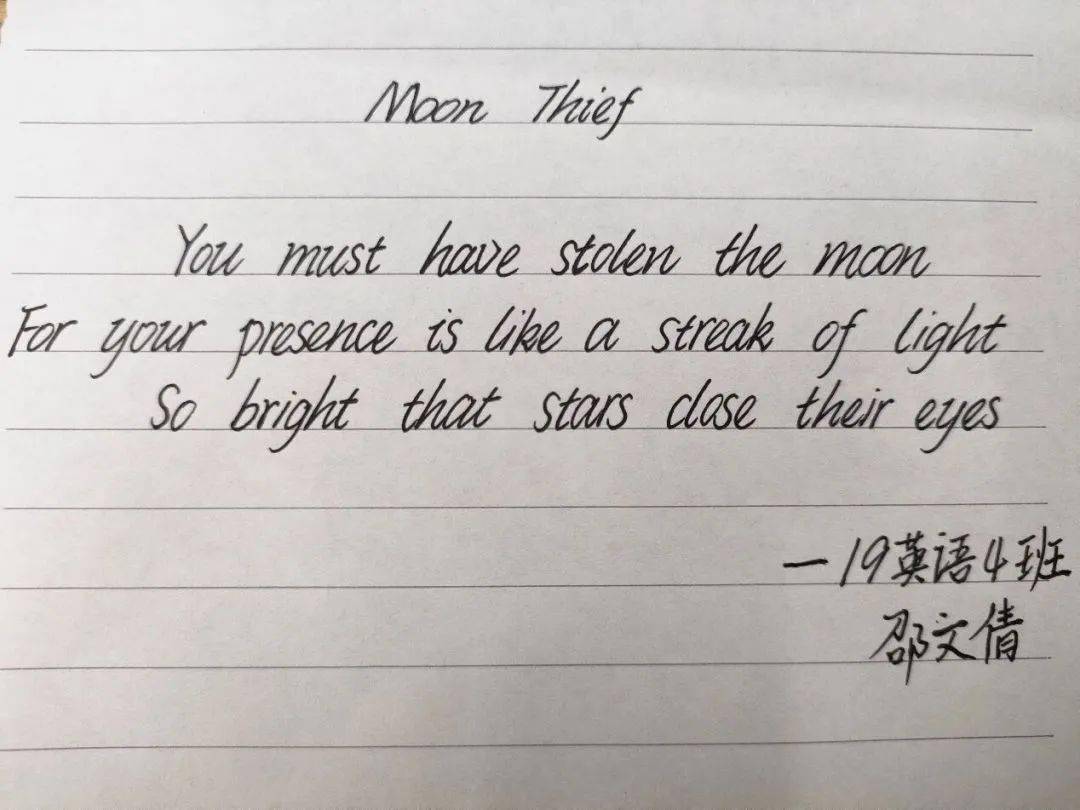 Moon Thief
You must have stolen the moon
For your presence is like a streak of light
So bright that stars close their eyes
—19英语4班
邵文倩